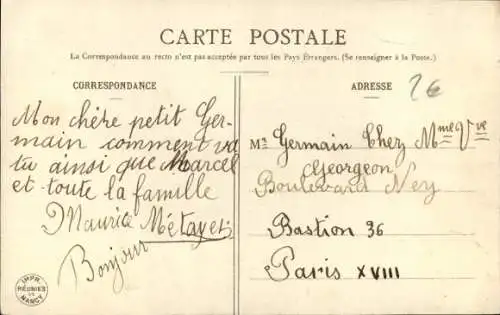 CARTE POSTALE
La Correspondance au recto n'est pas acceptée par tous les Pays Étrangers. (Se renseigner à la Poste.)
CORRESPONDANCE
Mon chère petit Ger-
main comment va
tu ainsi que Marcel
et toute la famille
Maurice Métayer
Bonjour
IMPR. RÉUNIES DE NANCY
ADRESSE
2€
M. Germain Chez Mme Vve
Georgeon
Boulevard Ney
Bastion 36
Paris XVIII